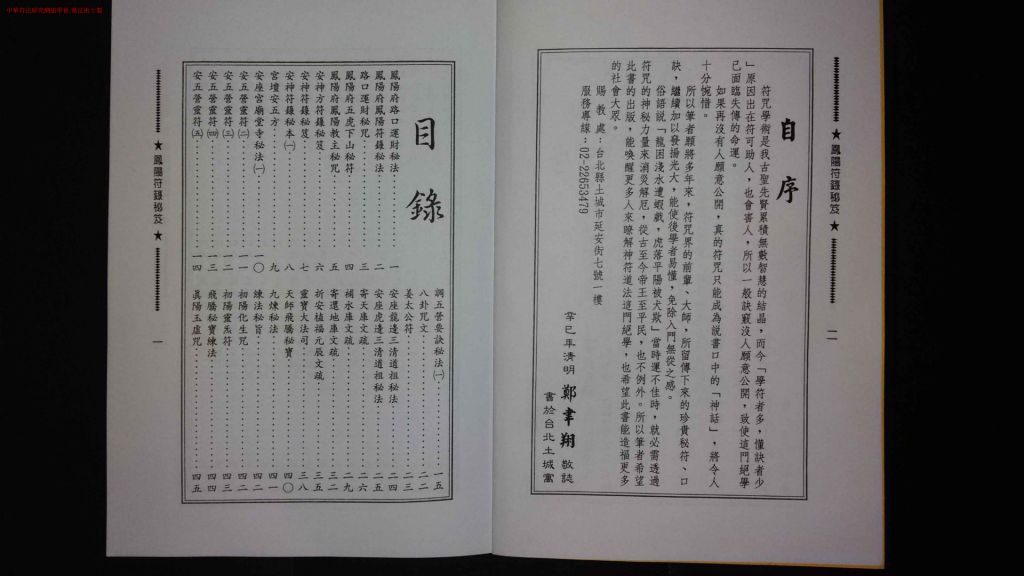 自序
符咒學術是我古聖先賢累積無數智慧的結晶,而今「學符者多,懂訣者少
」原因出在符可助人,也會害人,所以一般訣竅沒人願意公開,致使這門絕學
己面臨失傳的命運。
如果再沒有人願意公開,真的符咒只能成為説書口中的「神話」,將令人
十分惋惜。
所以筆者願將多年來,符咒界的前輩、大師,所留傳下來的珍貴秘符、口
訣,繼續加以發揚光大,能使後學者易懂,免除入門無從之感。
俗語説「龍困淺水遭蝦戲,虎落平陽被犬欺」當時運不佳時,就必需透過
符咒的神秘力量來消災解厄,從古至今帝王至平民,也不例外。所以筆者希望
此書的出版,能喚醒更多人來瞭解神符道法這門絕學,也希望此書能造福更多
的社會大眾。
賜教處:台北縣土城市延安街七號一樓
服務專線:02-22653479
辛巳年清明 鄭聿翔 敬誌
書於台北土城寓
★鳳陽符籙秘笈★
二
目錄
鳳陽府路口運財秘法……一
鳳陽府鳳陽符籙秘法……二
路口運財秘咒……三
鳳陽府五虎下山秘符……四
鳳陽府鳳陽教主秘咒……五
安神方符籙秘笈……六
安神符籙秘笈……七
安神符籙秘本㈠……八
宮壇安五方……九
安座宮廟堂寺秘法㈠……一〇
安五營靈符㈡……一一
安五營靈符㈢……一二
安五營靈符㈣……一三
安五營靈符㈤……一四
調五營要訣秘法㈠……一五
八卦咒文……一二
姜太公符……一三
安座龍邊三清道祖秘法……二四
安座虎邊三清道祖秘法……二五
寄天庫文疏……二六
補水庫文疏……二九
寄還地庫文疏……三二
祈安植福元辰文疏……三五
靈寶大法司……三八
天師飛騰秘寶……四〇
九煉秘法……四一
練法秘旨……四二
初陽化生咒……四二
初陽靈炁符……四三
飛騰秘寶練法……四四
真陽玉虛咒……四五
★鳳陽符籙秘笈★
一